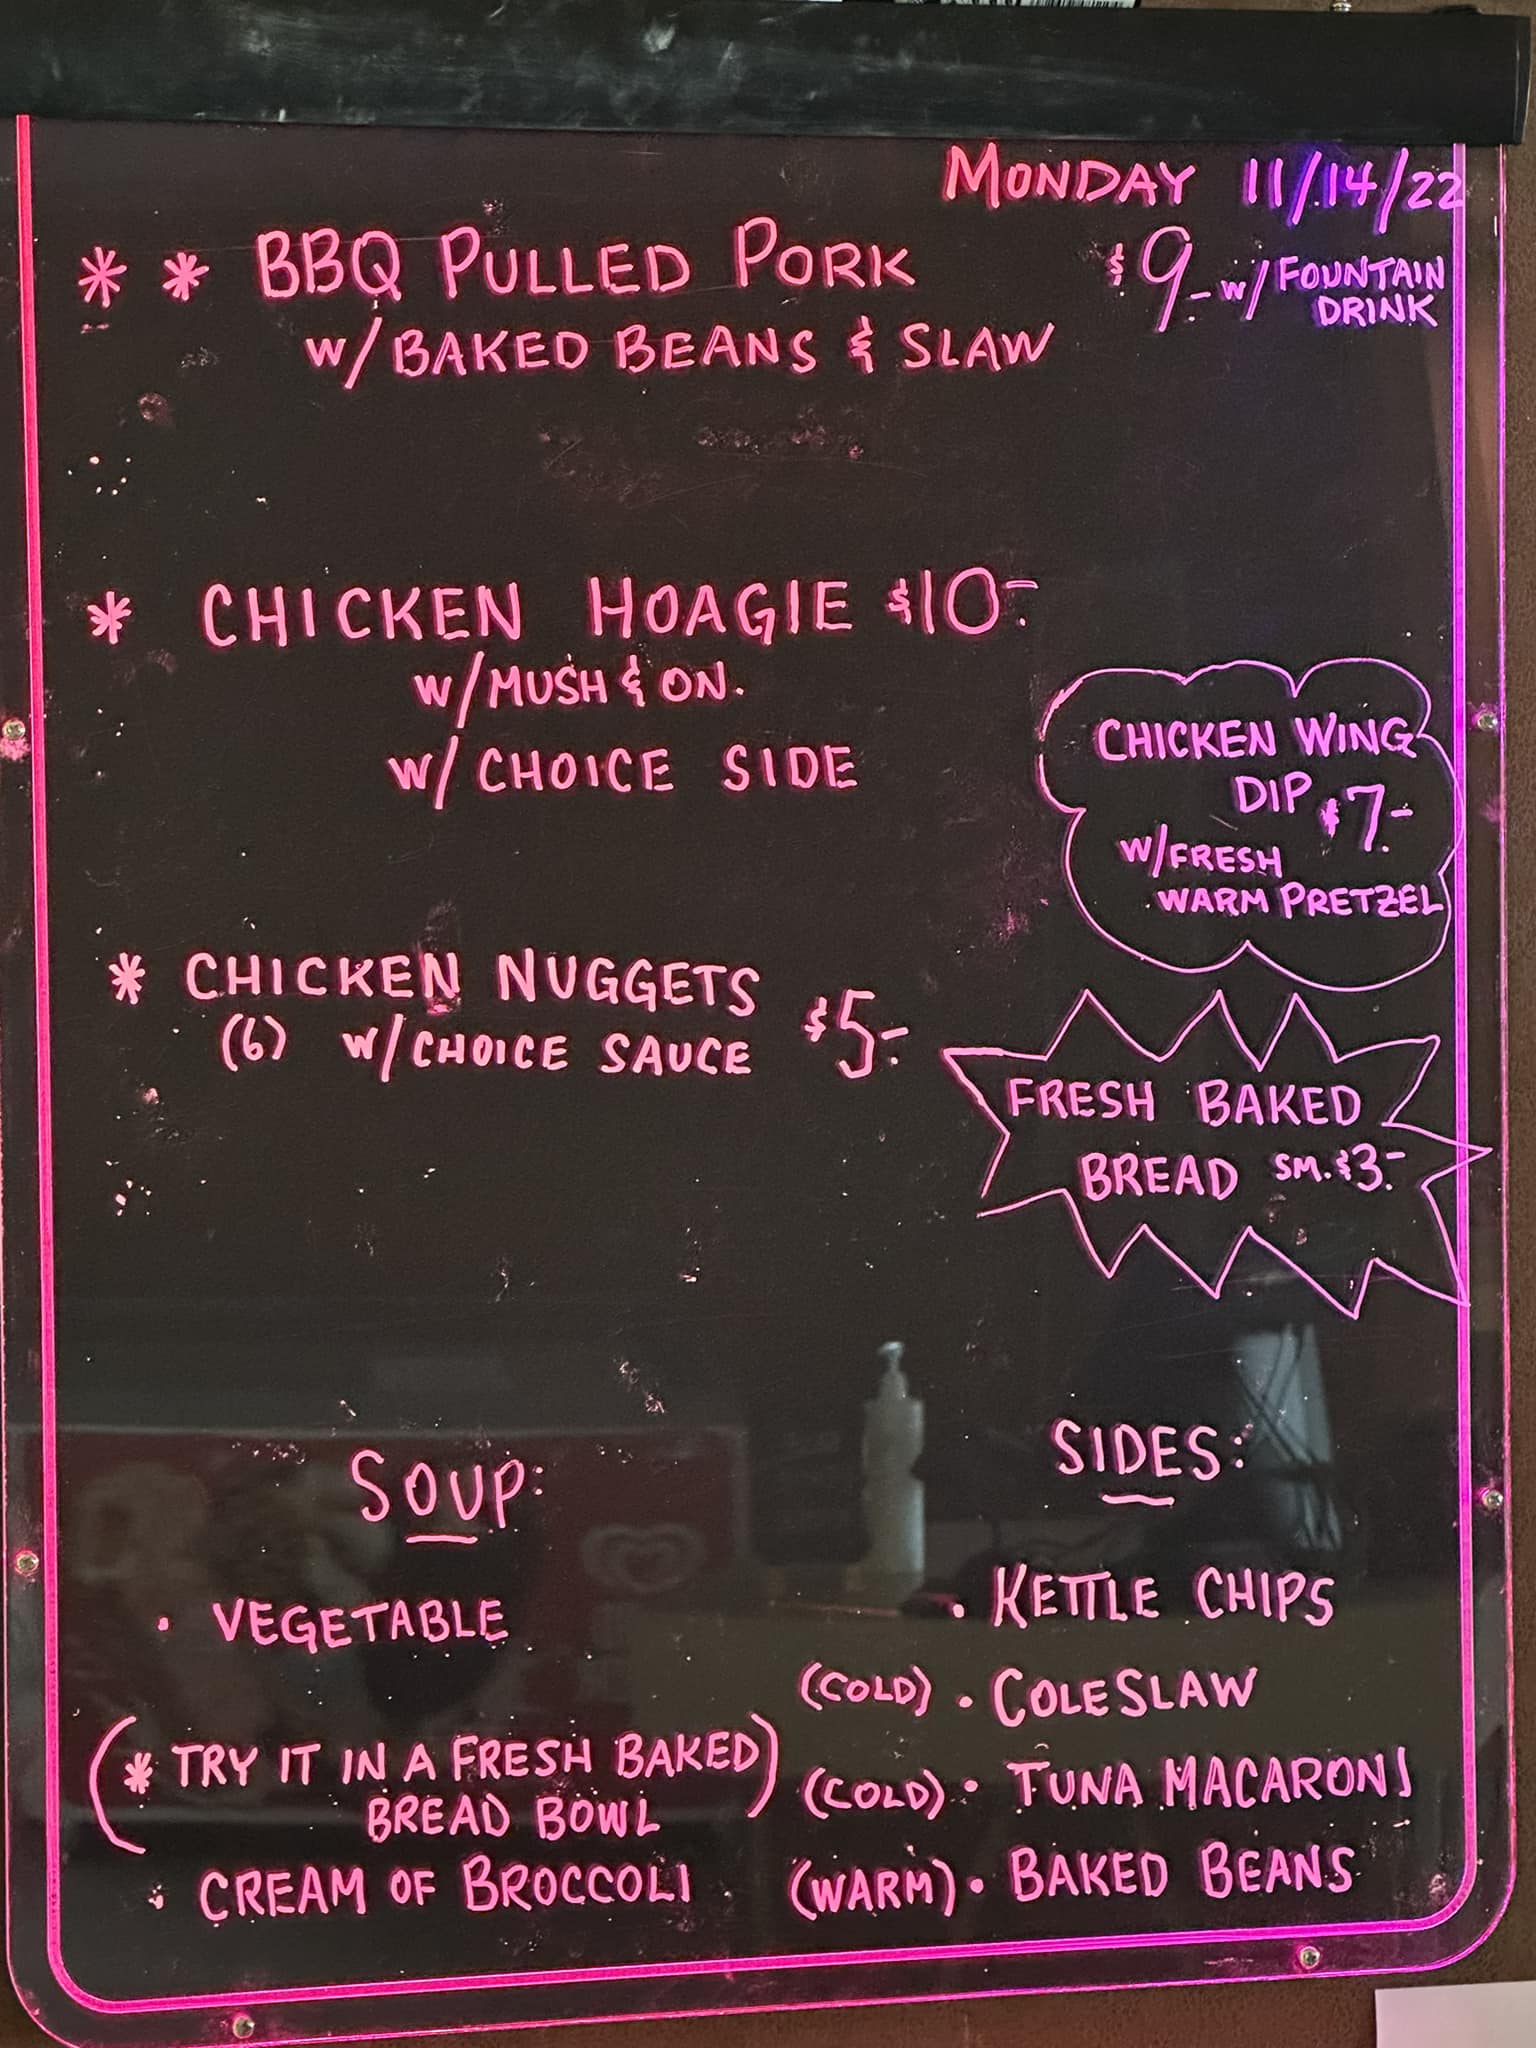 MONDAY 11/14/22
* * BBQ PULLED PORK $9.- w/ FOUNTAIN DRINK
w/ BAKED BEANS & SLAW
* CHICKEN HOAGIE $10.-
w/ MUSH & ON.
w/ CHOICE SIDE
CHICKEN WING
DIP $7.-
w/ FRESH
WARM PRETZEL
* CHICKEN NUGGETS
(6) w/ CHOICE SAUCE $5.-
FRESH BAKED
BREAD SM. $3.-
SOUP:
• VEGETABLE
(* TRY IT IN A FRESH BAKED
BREAD BOWL)
• CREAM OF BROCCOLI
SIDES:
• KETTLE CHIPS
(COLD) • COLESLAW
(COLD) • TUNA MACARONI
(WARM) • BAKED BEANS